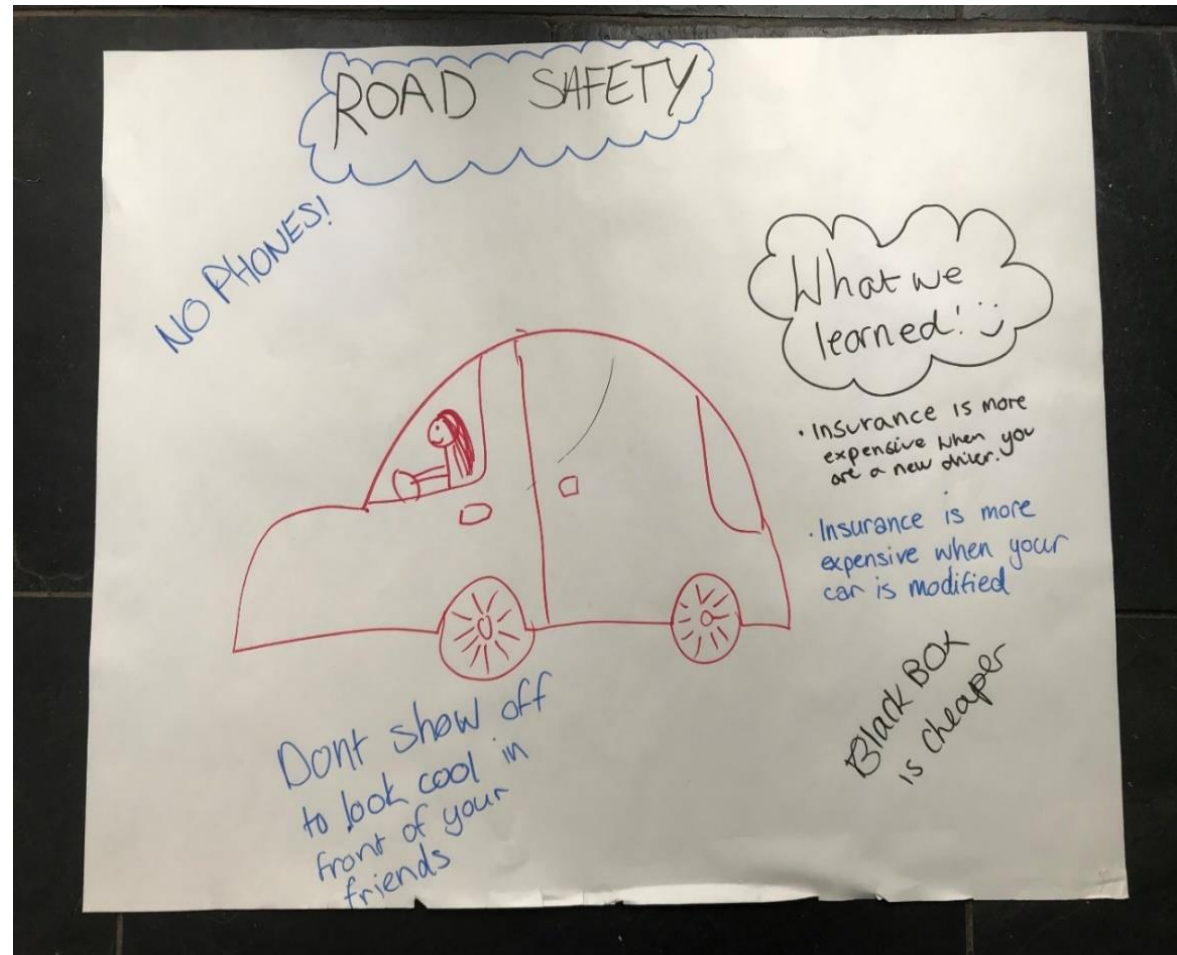 ROAD SAFETY
NO PHONES!
What we
learned! :)
· Insurance is more
expensive when you
are a new driver.
· Insurance is more
expensive when your
car is modified
Black BOX
is cheaper
Dont show off
to look cool in
front of your
friends